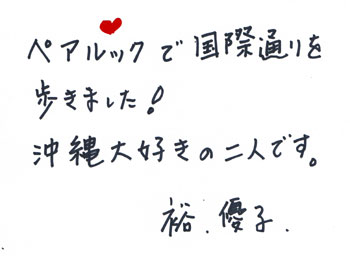 ペアルックで国際通りを
歩きました!
沖縄大好きの二人です。
裕.優子.